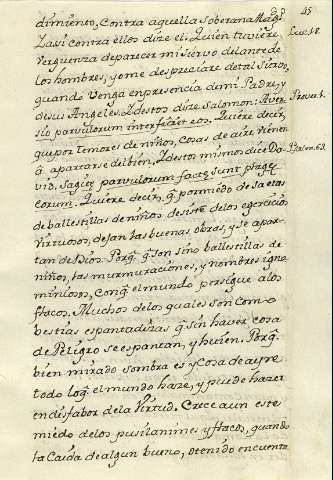 45
dimiento, contra aquella soberana Mag.d
Y assi contra ellos dize el. Quien tuviere
Verguenza de parecer mi siervo delante de
los hombres, yo me despreciare de tal siervo,
quando venga en presencia de mi Padre, y
de sus Angeles. Y destos dize Salomon: Aver
sio parvulorum interficiet eos. Quiere decir,
que por temores de niños, cosas de aire vienen
à apartarse del bien. Y destos mismos dice Da-
vid. Sagitę parvulorum factę sunt plagę
eorum. Quiere decir, q̃ por miedo de saetas
de ballestillas de niños desiste de los exercicios
Virtuosos, dejan las buenas obras, y se apar-
tan de Dios. Porq̃ q̃ son sino ballestillas de
niños, las murmuraciones, y nombres igno
miniosos, conq̃ el mundo persigue a los
flacos. Muchos de los quales son como
bestias espantadizas q̃ sin haver cosa
de Peligro se espantan, y huien. Porq̃
bien mirado sombra es y cosa de ayre
todo loq̃ el mundo haze, y puede hazer
en disfabor de la Virtud. Crece aun este
miedo de los pusilanimes y flacos, quando
la Caida de algun bueno, o tenido en cuenta
Luc. 18.
Prover. 1.
Psalm. 63.